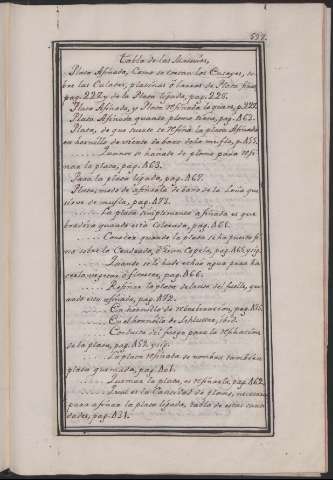 597.
Tabla de las Materias,
Plata Afinada, Como se sacan los Ensayes, so-
bre las Culaces, planchas ó barras de Plata fina,
pag. 222. y de la Plata ligada, pag. 226.
Plata Afinada, y Plata refinada, lo que es, p. 221.
Plata Afinada quanto plomo tiene, pag. 463.
Plata, de que suerte se refina la plata Afinada
en hornillo de viento de baxo de la mufla, p. 455.
quanto se añade de plomo para refi-
nar la plata, pag. 463.
Para la plata ligada, pag. 467.
Plata, modo de afinarla de baxo de la Leña que
sirve de mufla, pag. 473.
La plata simplemente afinada es que-
bradiza quando está Colorada, pag. 461.
Conocer quando la plata se ha puesto
fina sobre la Cendrada, ó gran Copela, pag. 465. ysig.
Quando se le ha de echar agua para ha-
cerla negrear ó florecer, pag. 466.
Refinar la plata delante del fuelle, qu-
ando está afinada, pag. 472.
En hornillo de reverberacion, pag. 475.
En el hornillo de Schlutter, ibid.
Conducta del fuego para la refinacion
de la plata, pag. 459. ysig.
La plata refinada se nombra tambien
plata quemada, pag. 461.
Quemar la plata, es refinarla, pag. 462.
Qual es la Cantidad de plomo, necesaria
para afinar la plata ligada, tabla de estas canti-
dades, pag. 431.